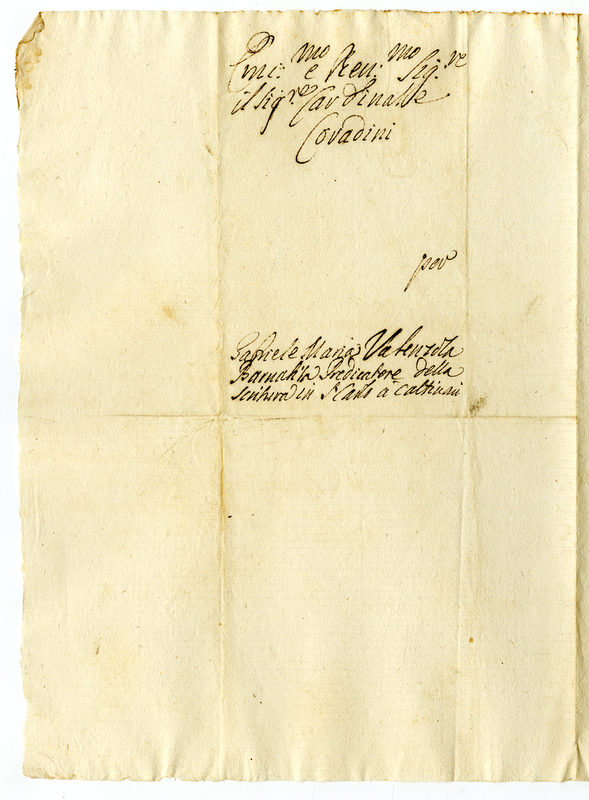 Emi: mo e Reu: mo Sig. re
il Sig. re Cardinale
Coradini
per
Gabriele Maria Valenzola
Barnabita Predicatore della
scrittura in S. Carlo a Catinari